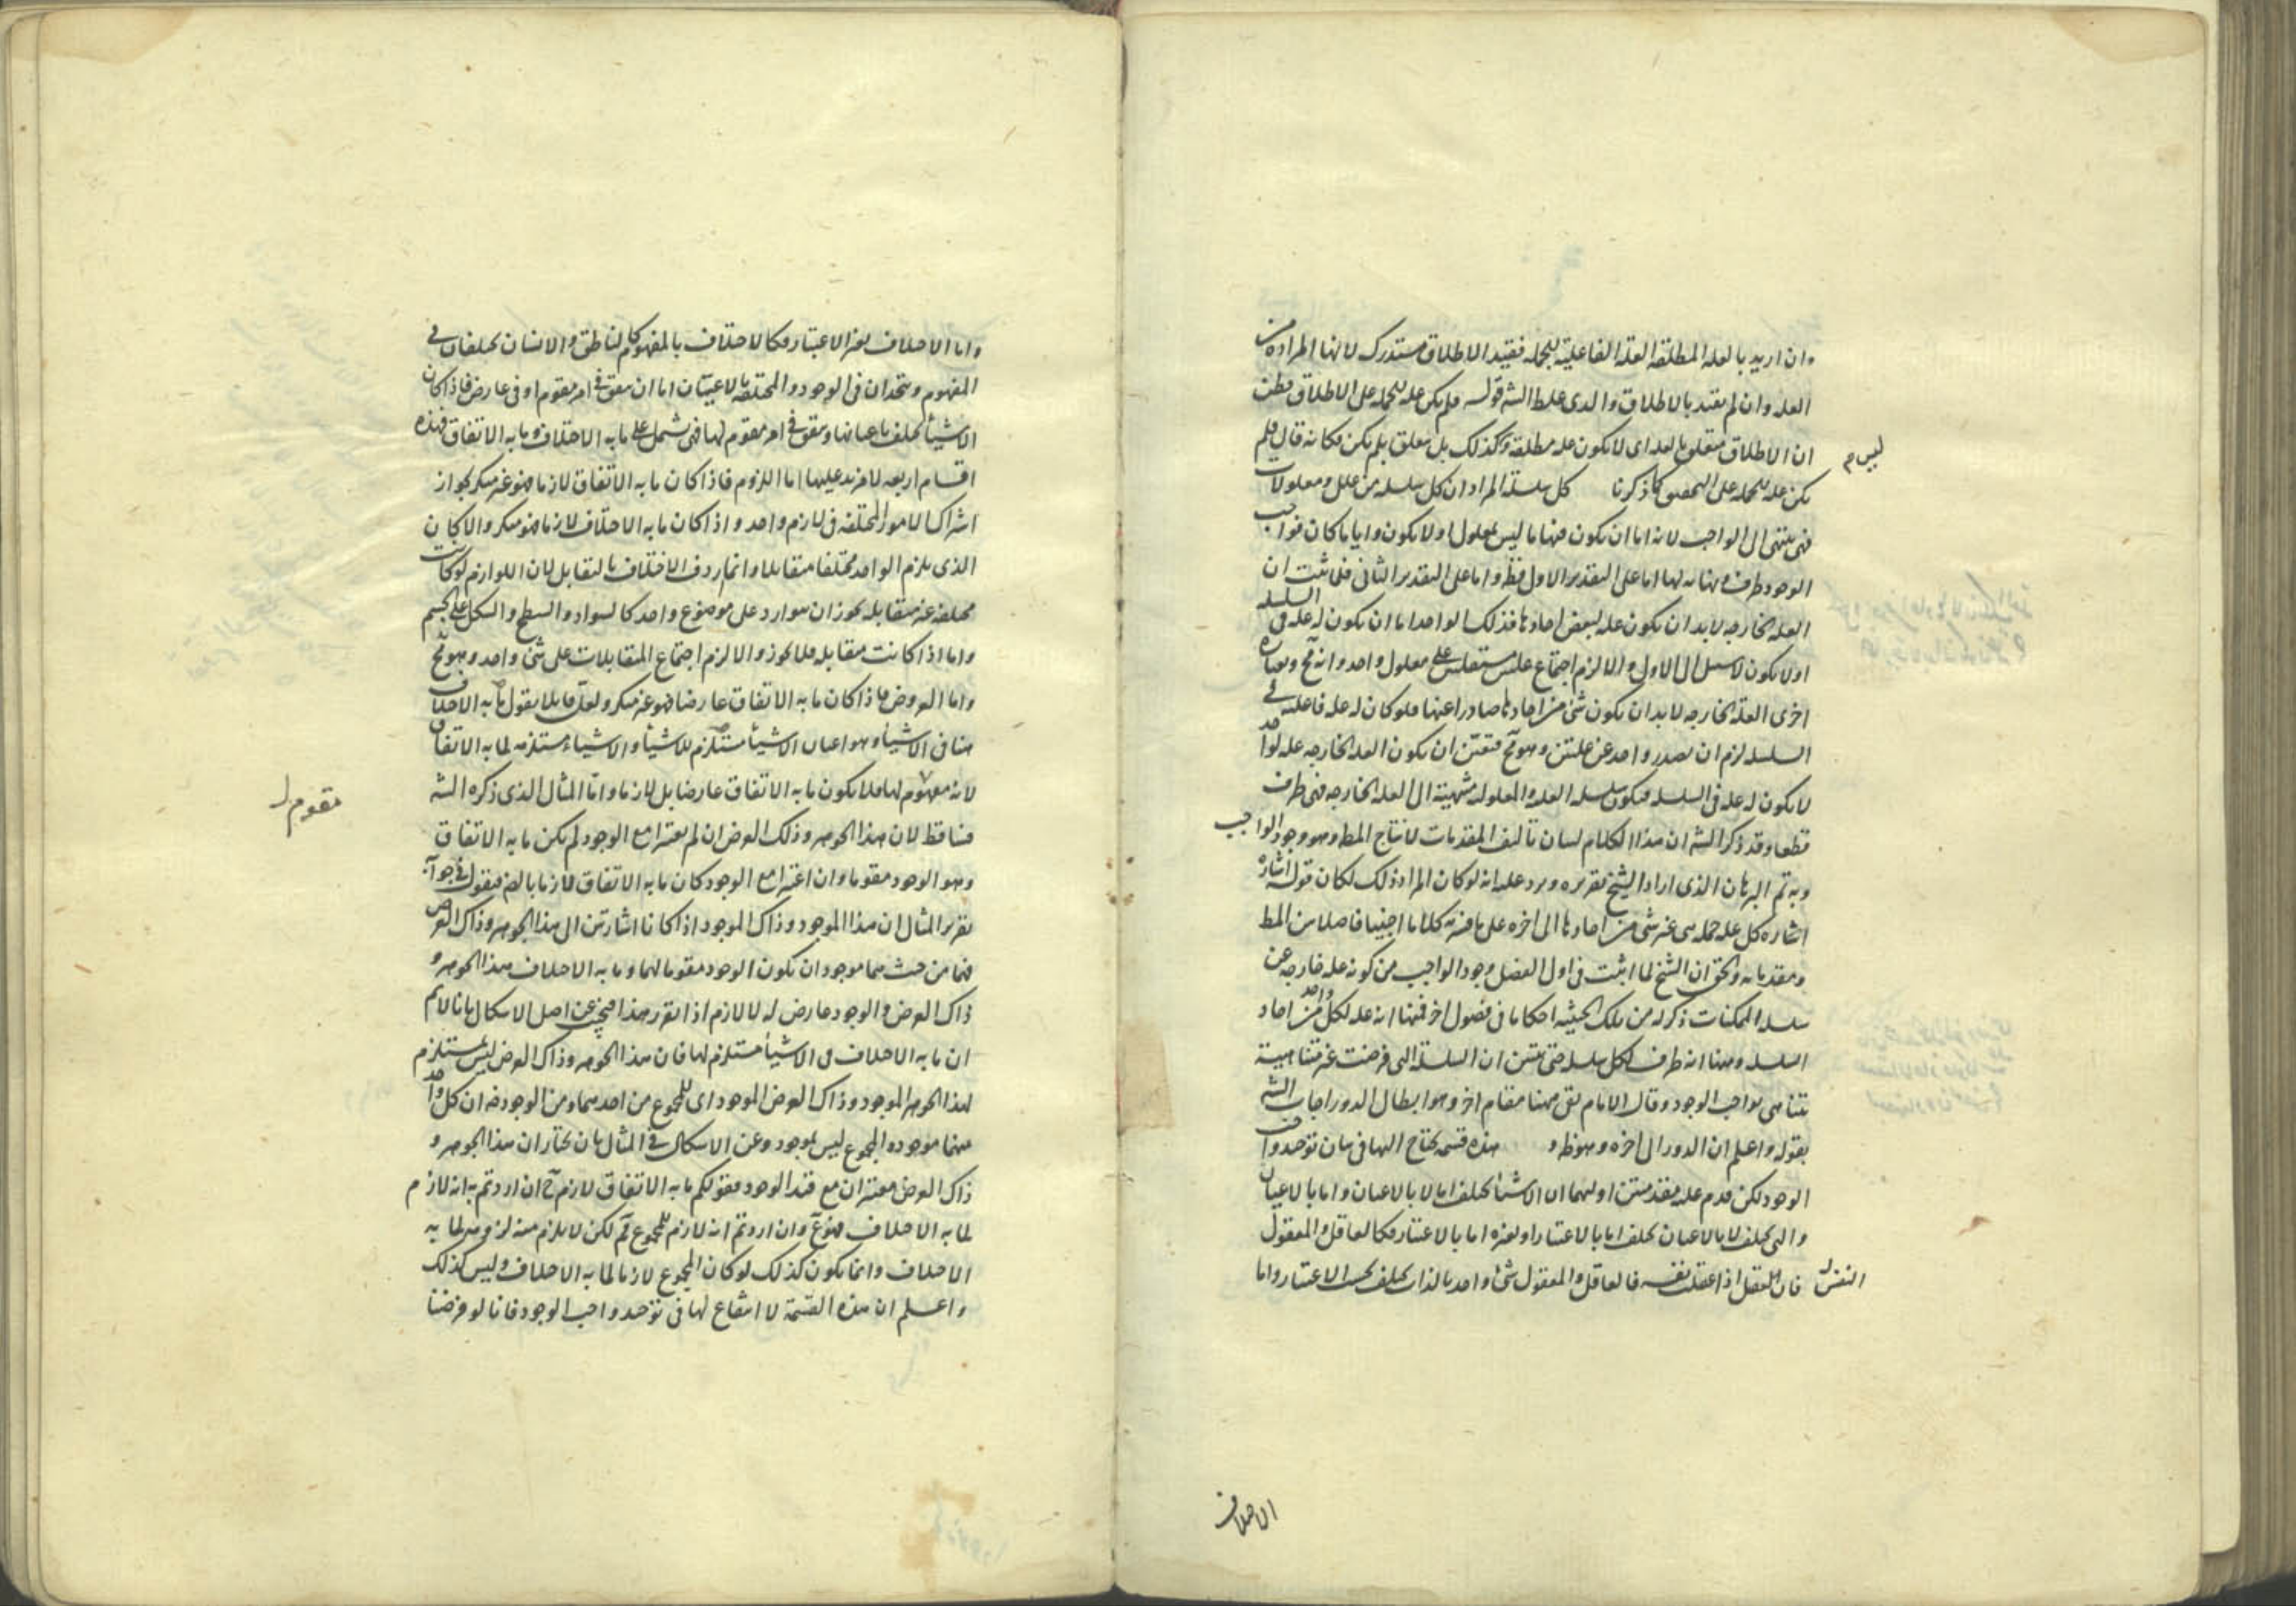 وان اريد بالعله المطلقه العله الفاعلية للجمله فقيد الاطلاق مستدرك لانها المراده من
العله وان لم تقيد بالاطلاق والذى غلط الشه قوله فلم يكن عله للجمله على الاطلاق فظن
ان الاطلاق متعلق بالعله اى لا يكون عله مطلقة وليس كذلك بل متعلق بلم يكن فكانه قال فلم
يكن عله للجمله على التحقيق كما ذكرنا كل سلسلة المراد ان كل سلسله من علل ومعلولات
فهى تنتهى الى الواجب لانه اما ان يكون فيها ما ليس بمعلول او لا يكون وايا ما كان فواجب
الوجود طرف ونهايه لها اما على التقدير الاول فظ واما على التقدير الثانى فلما ثبت ان
العله الخارجه لابد ان يكون عله لبعض احادها فذلك الواحد اما ان يكون له عله فى السلسله
اولا يكون لا سبيل الى الاول والا لزم اجتماع علتين مستقلتين على معلول واحد وانه مح وبعباره
اخرى العله الخارجه لابد ان يكون شئ من احادها صادرا عنها فلو كان له عله فاعليه فى
السلسله لزم ان يصدر واحد عن علتين وهو مح فتعين ان يكون العله الخارجه عله لواحد
لا يكون له عله فى السلسله فيكون سلسله العله والمعلول منتهية الى العله الخارجه فهى طرف
قطعا وقد ذكر الشه ان هذا الكلام لبيان تاليف المقدمات لانتاج المط وهو وجود الواجب
وبه تم البرهان الذى اراد الشيخ تقريره ويرد عليه انه لو كان المراد ذلك لكان قوله اشاره
اشاره كل عله جمله هى غير شئ من احادها الى اخره على ما فسره كلاما اجنبيا فاصلا بين المط
ومقدماته والحق ان الشيخ لما اثبت فى اول الفصل وجود الواجب من كونه عله خارجه عن
سلسله الممكنات ذكر له من تلك الحيثيه احكاما فى فصول اخر فمنها انه عله لكل واحد من احاد
السلسله ومنها انه طرف لكل سلسله حتى يتبين ان السلسلة التى فرضت غير متناهية
تتناهى بواجب الوجود وقال الامام بقى ههنا مقام اخر وهو ابطال الدور اجاب الشه
بقوله واعلم ان الدور الى اخره وهو ظ و هذه قسمه يحتاج اليها فى بيان توحد واجب
الوجود لكن قدم عليه مقدمتين اوليهما ان الاشياء تختلف اما لا بالاعيان واما بالاعيان
والتى تختلف لا بالاعيان تختلف اما بالاعتبار او بغيره اما بالاعتبار فكالعاقل والمعقول
فان العقل اذا عقلت نفسه فالعاقل والمعقول شئ واحد بالذات يختلف بحسب الاعتبار واما
ليس م
النفس ل
الاختلاف
واما الاختلاف بغير الاعتبار فكالاختلاف بالمفهوم كالناطق والانسان يختلفان فى
المفهوم ويتحدان فى الوجود والمختلفه بالاعيان اما ان يتفق فى امر مقوم او فى عارض فاذا كان
الاشياء تختلف باعيانها ويتفق فى امر مقوم لها فهى تشمل على ما به الاختلاف وما به الاتفاق فهذه
اقسام اربعه لا مزيد عليها اما اللزوم فاذا كان ما به الاتفاق لازما فهو غير منكر لجواز
اشتراك الامور المختلفه فى لازم واحد واذا كان ما به الاختلاف لازما فهو منكر والا لكان
الذى يلزم الواحد مختلفا متقابلا وانما ردف الاختلاف بالتقابل لان اللوازم لو كانت
مختلفه غير متقابله يجوز ان يتوارد على موضوع واحد كالسواد والسطح والشكل على الجسم
واما اذا كانت متقابله فلا يجوز والا لزم اجتماع المتقابلات على شئ واحد وهو مح
واما العروض فاذا كان ما به الاتفاق عارضا فهو غير منكر ولعل قايلا يقول ما به الاختلاف
هنا فى الاشياء وهو اعيان الاشياء مستلزم للاشياء والاشياء مستلزمه لما به الاتفاق
لانه مفهوم لها فلا يكون ما به الاتفاق عارضا بل لازما واما المثال الذى ذكره الشه
فساقط لان هذا الجوهر وذلك العرض ان لم يعتبرا مع الوجود لم يكن ما به الاتفاق
وهو الوجود مقوما وان اعتبرا مع الوجود كان ما به الاتفاق لازما بالضر فيقول فى جوابه
تقرير المثال ان هذا الموجود وذاك الموجود اذا كانا اشارتين الى هذا الجوهر وذاك العرض
فهما من حيث هما موجودان يكون الوجود مقوما لهما وما به الاختلاف هذا الجوهر و
ذاك العرض والوجود عارض له لا لازم اذا تقرر هذا فنجيب عن اصل الاشكال بانا لانم
ان ما به الاختلاف فى الاشياء مستلزم لها فان هذا الجوهر وذاك العرض ليس بمستلزم
لهذا الجوهر الموجود وذاك العرض الموجود اى للمجموع من احدهما ومن الوجود ضه ان كل واحد
منهما موجود والمجموع ليس بموجود وعن الاشكال فى المثال بان نختار ان هذا الجوهر و
ذاك العرض معتبران مع قيد الوجود فقولكم ما به الاتفاق لازم ح ان اردتم به انه لازم
لما به الاختلاف فهو مم وان اردتم انه لازم للمجموع فمم لكن لا يلزم منه لزومه لما به
الاختلاف وانما يكون كذلك لو كان المجموع لازما لما به الاختلاف وليس كذلك
واعلم ان هذه القسمة لا انتفاع لها فى توحد واجب الوجود فانا لو فرضنا
مقوم ل